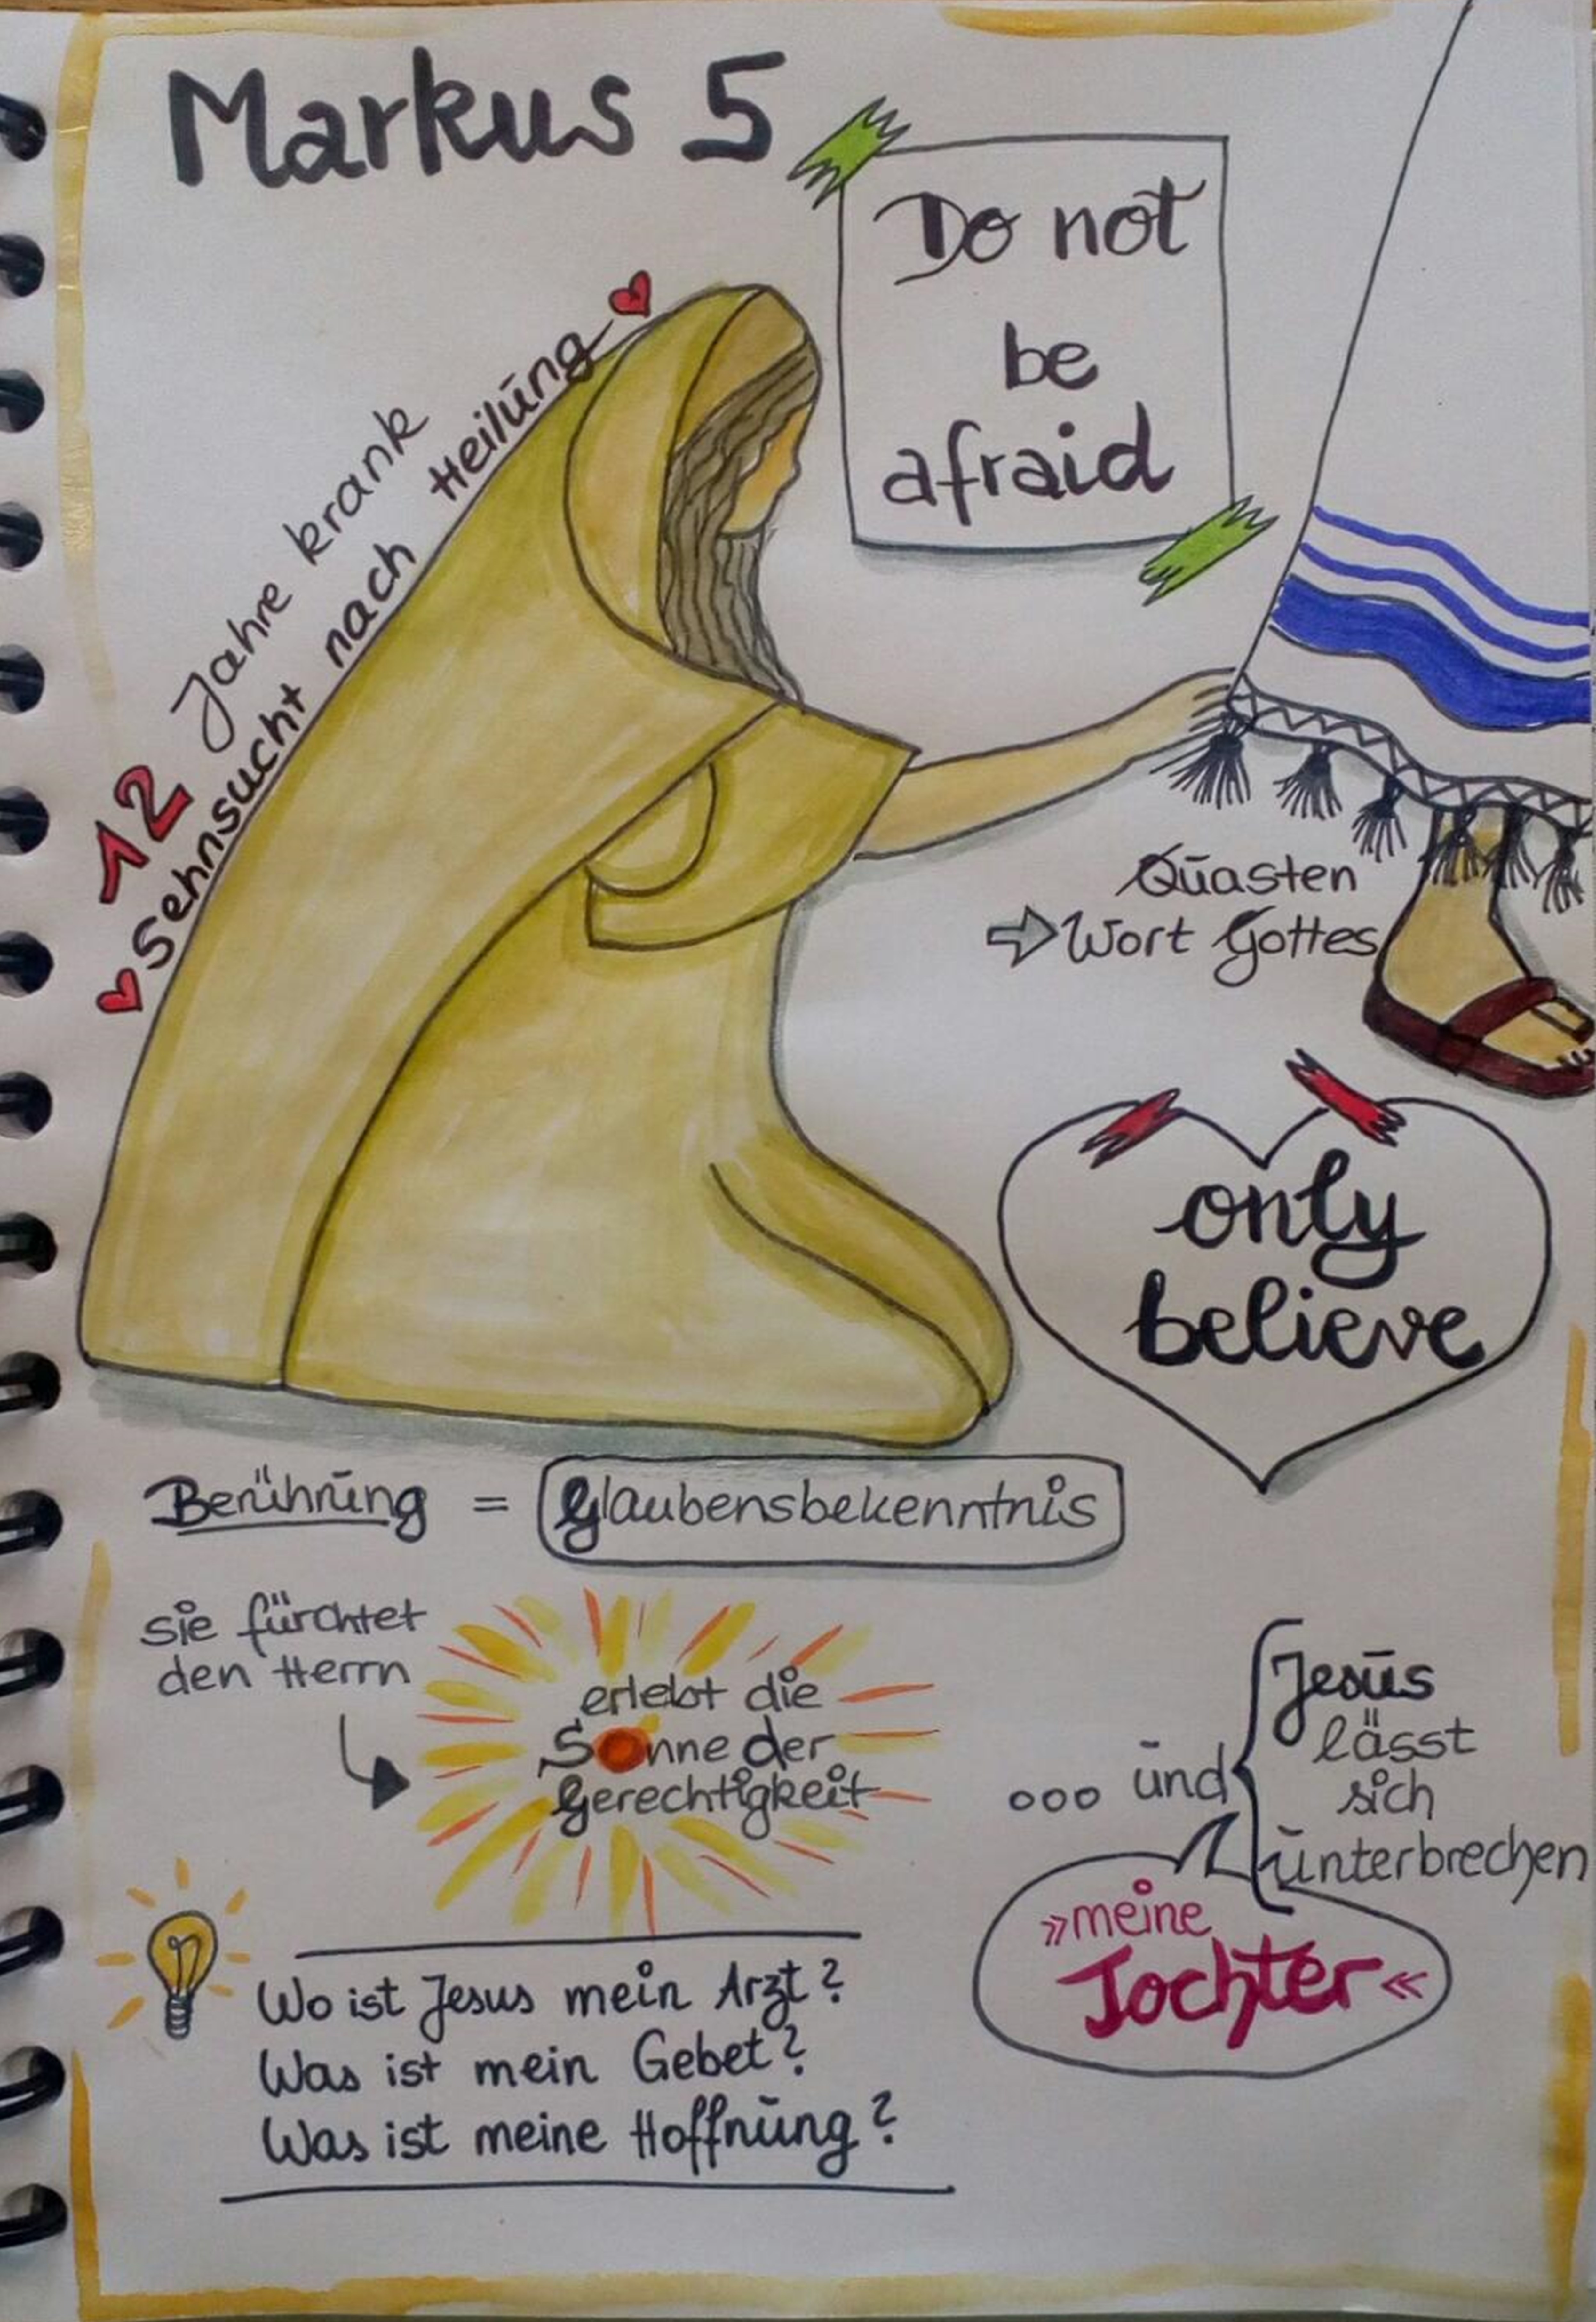 Markus 5
Do not
be
afraid
12 Jahre krank
Sehnsucht nach Heilung
Quasten
Wort Gottes
only
believe
Berührung = Glaubensbekenntnis
sie fürchtet
den Herrn
erlebt die
Sonne der
Gerechtigkeit
... und
Jesus
lässt
sich
unterbrechen
»meine
Tochter«
Wo ist Jesus mein Arzt?
Was ist mein Gebet?
Was ist meine Hoffnung?